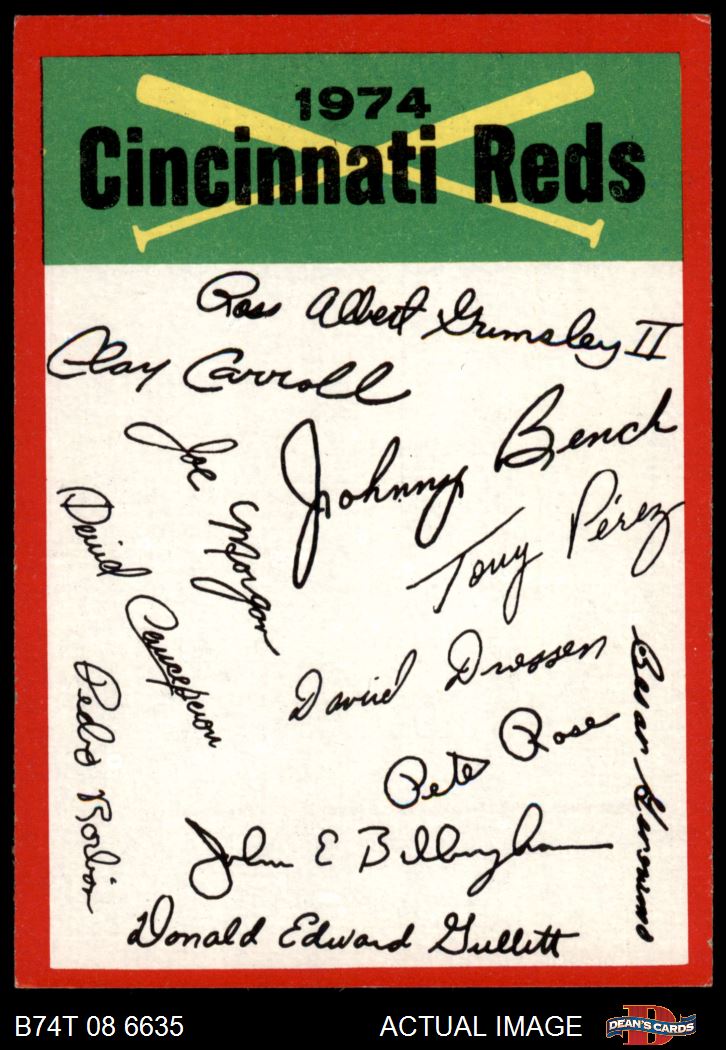 1974
Cincinnati Reds
Ross Albert Grimsley II
Clay Carroll
Johnny Bench
Joe Morgan
Tony Pérez
David Concepcion
David Driessen
Cesar Geronimo
Pete Rose
Pedro Borbón
John E Billingham
Donald Edward Gullett
B74T 08 6635
ACTUAL IMAGE
D
DEAN'S CARDS